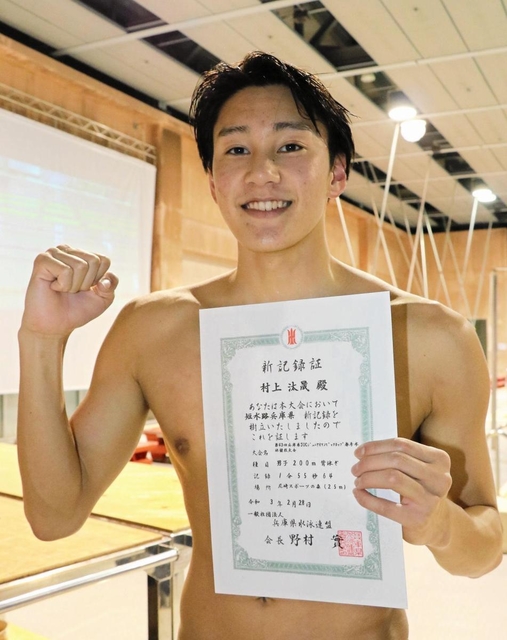 新記録証
村上 汰晟 殿
あなたは本大会において
短水路兵庫県 新記録を
樹立いたしましたので
これを証します
大会名
種目 男子 200m 背泳ぎ
記録 1分55秒64
場所 尼崎スポーツの森 (25m)
令和 3年2月28日
一般社団法人
兵庫県水泳連盟
会長 野村